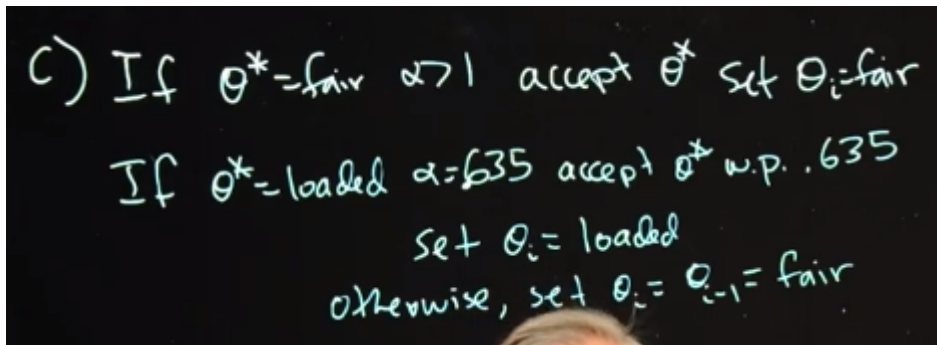 c) If θ*=fair α>1 accept θ* set θᵢ=fair
If θ*=loaded α=.635 accept θ* w.p. .635
set θᵢ= loaded
otherwise, set θᵢ= θᵢ₋₁= fair